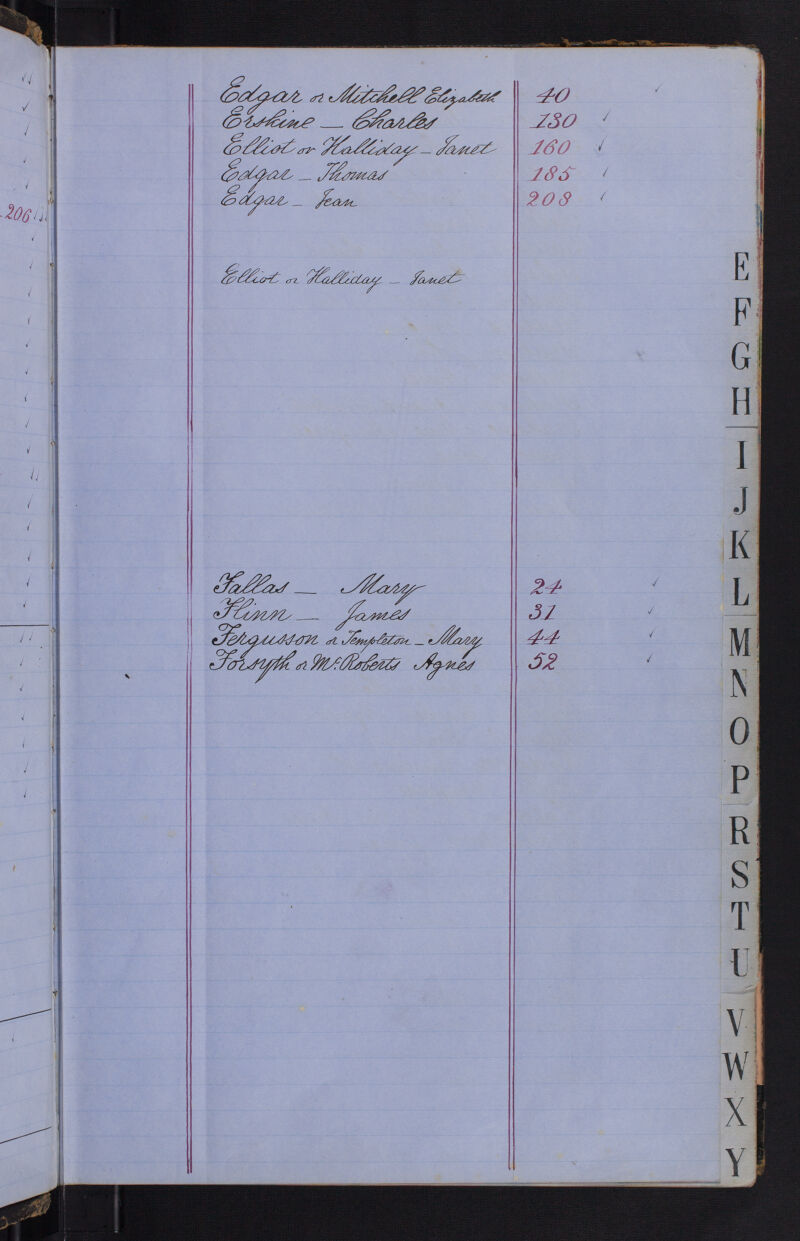 206
Edgar or Mitchell Elizabeth 40
Erskine — Charles 130
Elliot or Halliday — Janet 160
Edgar — Thomas 185
Edgar — Jean 208
Elliot or Halliday — Janet
Fallas — Mary 24
Flinn — James 31
Fergusson or Templeton — Mary 44
Forsyth or Mc.Roberts Agnes 52
E
F
G
H
I
J
K
L
M
N
O
P
R
S
T
U
V
W
X
Y